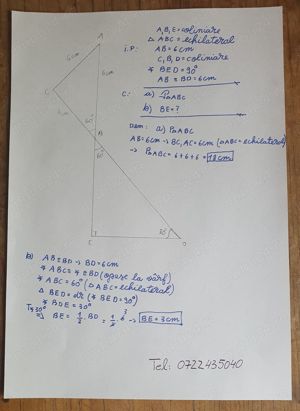 A, B, E = coliniare
△ ABC = echilateral
i.p: AB = 6cm
C, B, D = coliniare
∢ BED = 90°
AB ≡ BD = 6cm
c: a) P△ABC
b) BE = ?
Dem: a) P△ABC
AB = 6cm → BC, AC = 6cm (△ABC = echilateral)
→ P△ABC = 6+6+6 = 18cm
A
6cm
6cm
C
6cm
60°
B
60°
E
30°
D
b) AB ≡ BD → BD = 6cm
∢ ABC = ∢ EBD (opuse la vârf)
∢ ABC = 60° (△ABC = echilateral)
△ BED = dr (∢ BED = 90°)
∢ BDE = 30°
T∢30° ⇒ BE = 1/2 · BD = 1/2 · 6 → BE = 3cm
Tel: 0722435040